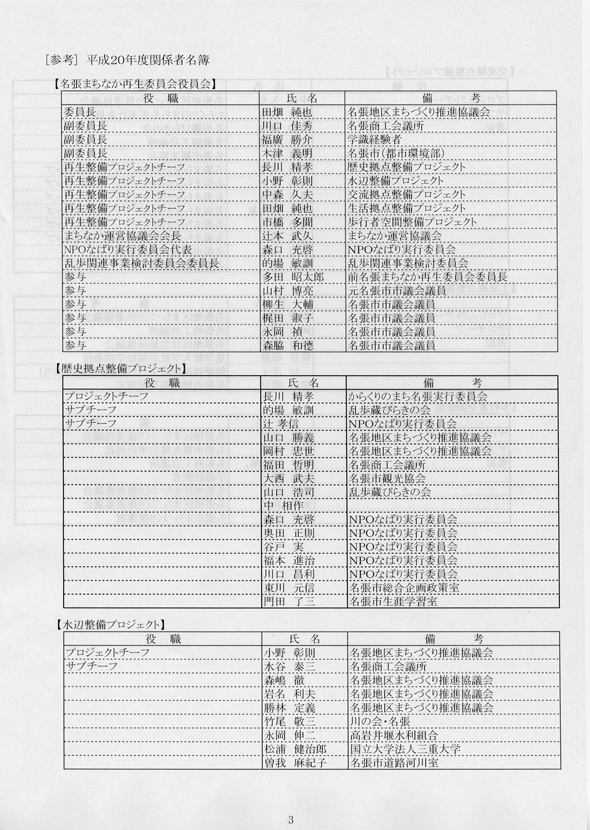 [参考] 平成20年度関係者名簿
【名張まちなか再生委員会役員会】
役 職 氏 名 備 考
委員長 田畑 純也 名張地区まちづくり推進協議会
副委員長 川口 佳秀 名張商工会議所
副委員長 福廣 勝介 学識経験者
副委員長 木津 義明 名張市(都市環境部)
再生整備プロジェクトチーフ 長川 精孝 歴史拠点整備プロジェクト
再生整備プロジェクトチーフ 小野 彰則 水辺整備プロジェクト
再生整備プロジェクトチーフ 中森 久夫 交流拠点整備プロジェクト
再生整備プロジェクトチーフ 田畑 純也 生活拠点整備プロジェクト
再生整備プロジェクトチーフ 市橋 多聞 歩行者空間整備プロジェクト
まちなか運営協議会会長 辻本 武久 まちなか運営協議会
NPOなばり実行委員会代表 森口 充啓 NPOなばり実行委員会
乱歩関連事業検討委員会委員長 的場 敏訓 乱歩関連事業検討委員会
参与 多田 昭太郎 前名張まちなか再生委員会委員長
参与 山村 博亮 元名張市市議会議員
参与 柳生 大輔 名張市市議会議員
参与 梶田 淑子 名張市市議会議員
参与 永岡 禎 名張市市議会議員
参与 森脇 和徳 名張市市議会議員
【歴史拠点整備プロジェクト】
役 職 氏 名 備 考
プロジェクトチーフ 長川 精孝 からくりのまち名張実行委員会
サブチーフ 的場 敏訓 乱歩蔵びらきの会
サブチーフ 辻 孝信 NPOなばり実行委員会
山口 勝義 名張地区まちづくり推進協議会
岡村 忠世 名張地区まちづくり推進協議会
福田 哲明 名張商工会議所
大西 武夫 名張市観光協会
山口 浩司 乱歩蔵びらきの会
中 相作
森口 充啓 NPOなばり実行委員会
奥田 正則 NPOなばり実行委員会
谷戸 実 NPOなばり実行委員会
福本 進治 NPOなばり実行委員会
川口 昌利 NPOなばり実行委員会
東川 元信 名張市総合企画政策室
門田 了三 名張市生涯学習室
【水辺整備プロジェクト】
役 職 氏 名 備 考
プロジェクトチーフ 小野 彰則 名張地区まちづくり推進協議会
サブチーフ 水谷 泰三 名張商工会議所
森嶋 徹 名張地区まちづくり推進協議会
岩名 利夫 名張地区まちづくり推進協議会
勝林 定義 名張地区まちづくり推進協議会
竹尾 敬三 川の会・名張
永岡 伸二 高岩井堰水利組合
松浦 健治郎 国立大学法人三重大学
曽我 麻紀子 名張市道路河川室
3